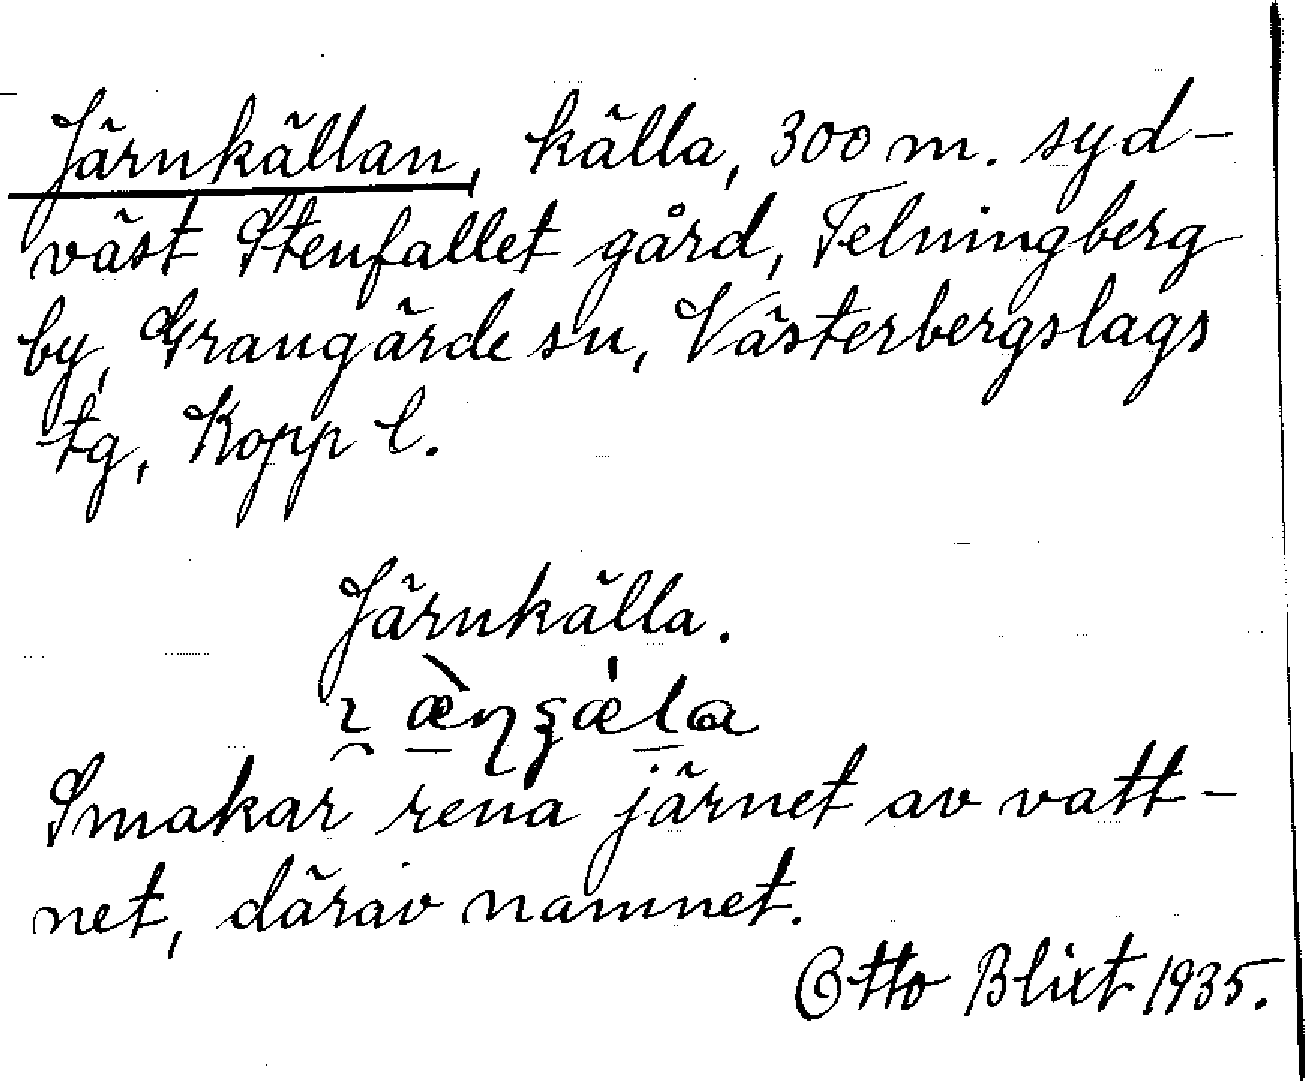 Järnkällan, källa, 300 m. syd-
väst Stenfallet gård, Felningberg
by, Grangärde sn, Västerbergslags
tg, Kopp l.
Järnkälla.
Smakar rena järnet av vatt-
net, därav namnet.
Otto Blixt 1935.